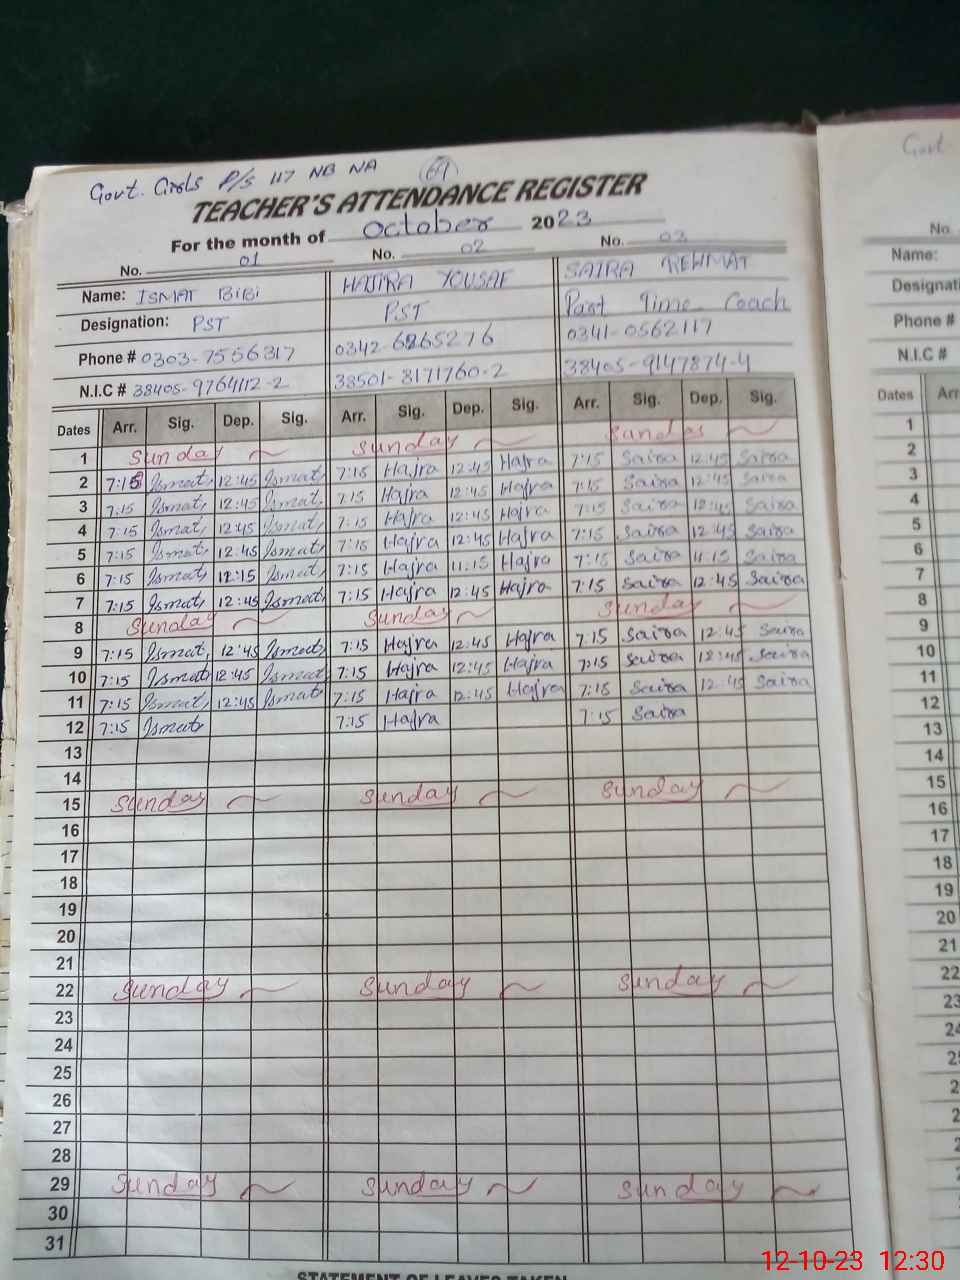 Govt. Girls P/S 117 NB NA 69
TEACHER'S ATTENDANCE REGISTER
For the month of October 2023
No. 01 No. 02 No. 03
Name: ISMAT BiBi HAJRA YOUSAF SAIRA REHMAT
Designation: PST PST Part Time Coach
Phone # 0303-7556317 0342-6865276 0341-0562117
N.I.C # 38405-9764112-2 38501-8171760-2 38405-9147874-4
Dates Arr. Sig. Dep. Sig. Arr. Sig. Dep. Sig. Arr. Sig. Dep. Sig.
1 Sunday Sunday Sunday
2 7:15 Ismat 12:45 Ismat 7:15 Hajra 12:45 Hajra 7:15 Saira 12:45 Saira
3 7:15 Ismat 12:45 Ismat 7:15 Hajra 12:45 Hajra 7:15 Saira 12:45 Saira
4 7:15 Ismat 12:45 Ismat 7:15 Hajra 12:45 Hajra 7:15 Saira 12:45 Saira
5 7:15 Ismat 12:45 Ismat 7:15 Hajra 12:45 Hajra 7:15 Saira 12:45 Saira
6 7:15 Ismat 12:15 Ismat 7:15 Hajra 11:15 Hajra 7:15 Saira 11:15 Saira
7 7:15 Ismat 12:45 Ismat 7:15 Hajra 12:45 Hajra 7:15 Saira 12:45 Saira
8 Sunday Sunday Sunday
9 7:15 Ismat 12:45 Ismat 7:15 Hajra 12:45 Hajra 7:15 Saira 12:45 Saira
10 7:15 Ismat 12:45 Ismat 7:15 Hajra 12:45 Hajra 7:15 Saira 12:45 Saira
11 7:15 Ismat 12:45 Ismat 7:15 Hajra 12:45 Hajra 7:15 Saira 12:45 Saira
12 7:15 Ismat 7:15 Hajra 7:15 Saira
13
14
15 Sunday Sunday Sunday
16
17
18
19
20
21
22 Sunday Sunday Sunday
23
24
25
26
27
28
29 Sunday Sunday Sunday
30
31
STATEMENT OF LEAVES TAKEN
Govt
No.
Name:
Phone #
N.I.C #
Dates
1
2
3
4
5
6
7
8
9
10
11
12
13
14
15
16
17
18
19
20
21
22
23
24
12-10-23 12:30